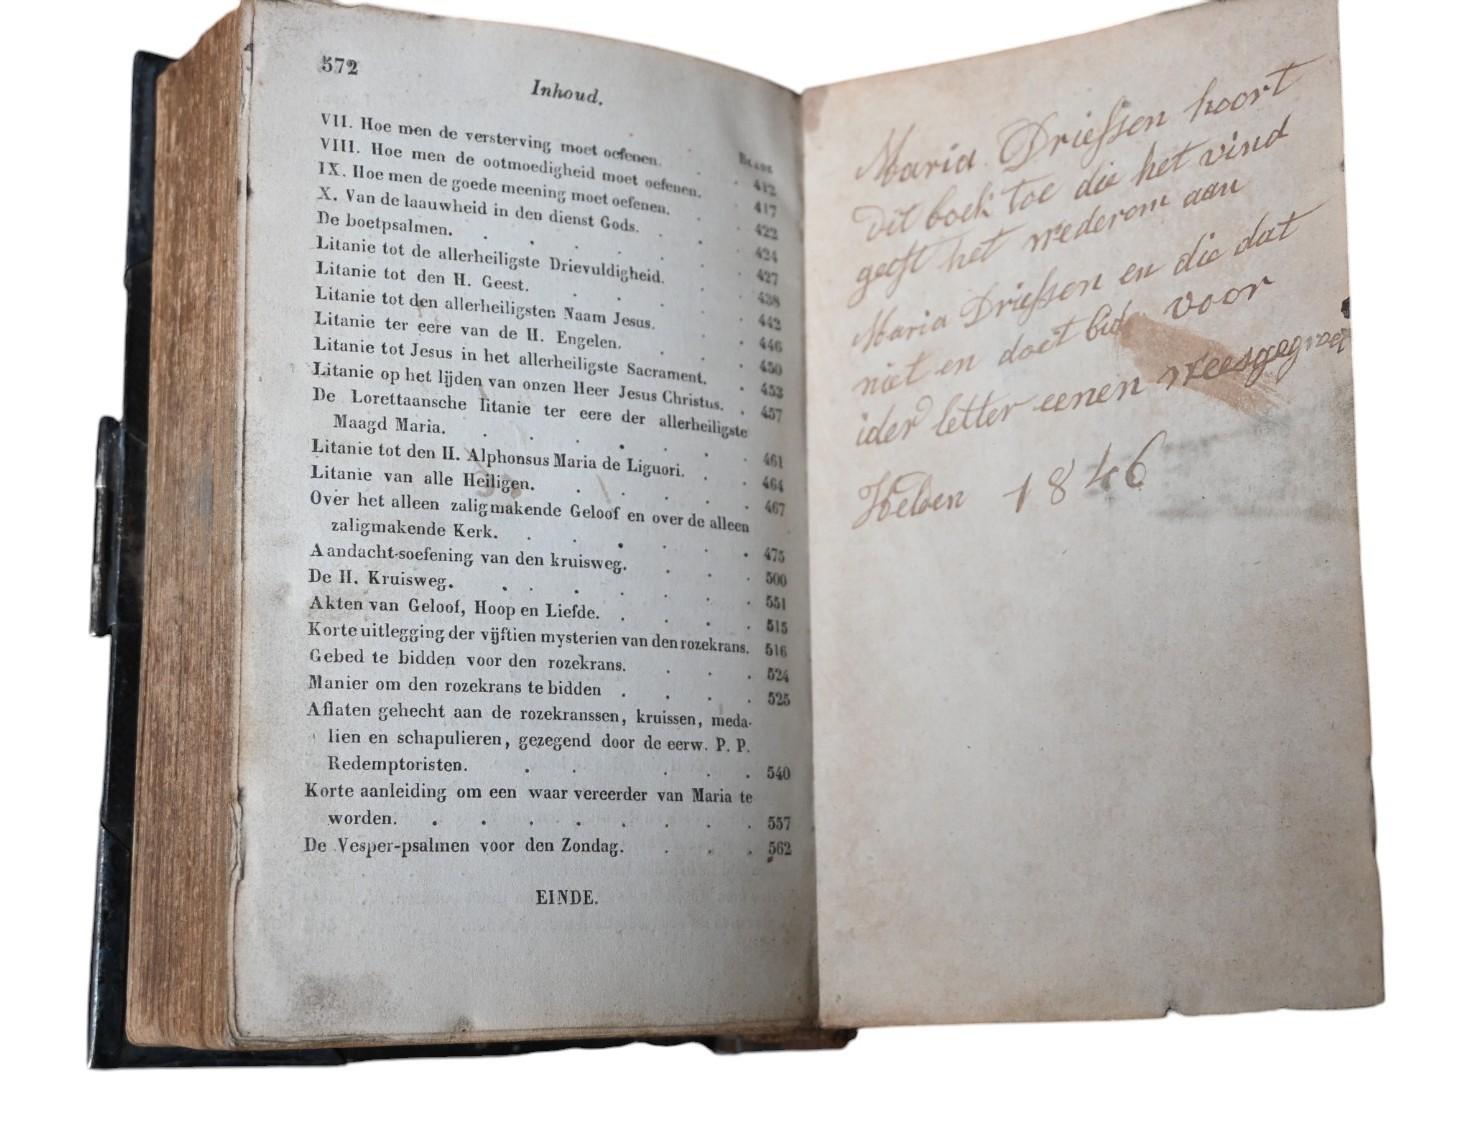 572
Inhoud.
Bladz.
VII. Hoe men de versterving moet oefenen. . . 412
VIII. Hoe men de ootmoedigheid moet oefenen. . 417
IX. Hoe men de goede meening moet oefenen. . . 422
X. Van de laauwheid in den dienst Gods. . . . 424
De boetpsalmen. . . . . . . 427
Litanie tot de allerheiligste Drievuldigheid. . . 438
Litanie tot den H. Geest. . . . . . 442
Litanie tot den allerheiligsten Naam Jesus. . . 446
Litanie ter eere van de H. Engelen. . . . 450
Litanie tot Jesus in het allerheiligste Sacrament. . 453
Litanie op het lijden van onzen Heer Jesus Christus. . 457
De Lorettaansche litanie ter eere der allerheiligste
Maagd Maria. . . . . . . 461
Litanie tot den H. Alphonsus Maria de Liguori. . . 464
Litanie van alle Heiligen. . . . . . 467
Over het alleen zaligmakende Geloof en over de alleen
zaligmakende Kerk. . . . . . . 475
Aandacht-soefening van den kruisweg. . . . 500
De H. Kruisweg. . . . . . . 551
Akten van Geloof, Hoop en Liefde. . . . . 515
Korte uitlegging der vijftien mysterien van den rozekrans. 516
Gebed te bidden voor den rozekrans. . . . 524
Manier om den rozekrans te bidden . . . . 525
Aflaten gehecht aan de rozekranssen, kruissen, meda-
lien en schapulieren, gezegend door de eerw. P. P.
Redemptoristen. . . . . . 540
Korte aanleiding om een waar vereerder van Maria te
worden. . . . . . . . . 557
De Vesper-psalmen voor den Zondag. . . . 562
EINDE.
Maria Driessen hoort
dit boek toe die het vind
geeft het wederom aan
Maria Driessen en die dat
niet en doet bid voor
ider letter eenen weesgegroet
Helden 1846